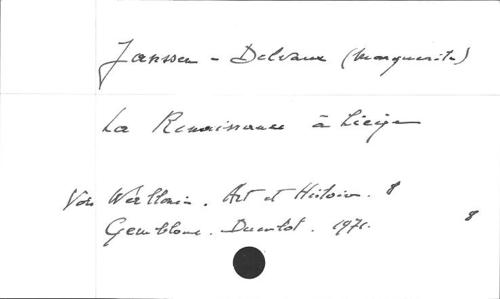 Janssen - Delvaux (Marguerite)
La Renaissance à Liège
Voir Wallonie. Art et Histoire. 8
Gembloux. Duculot. 1971. 8